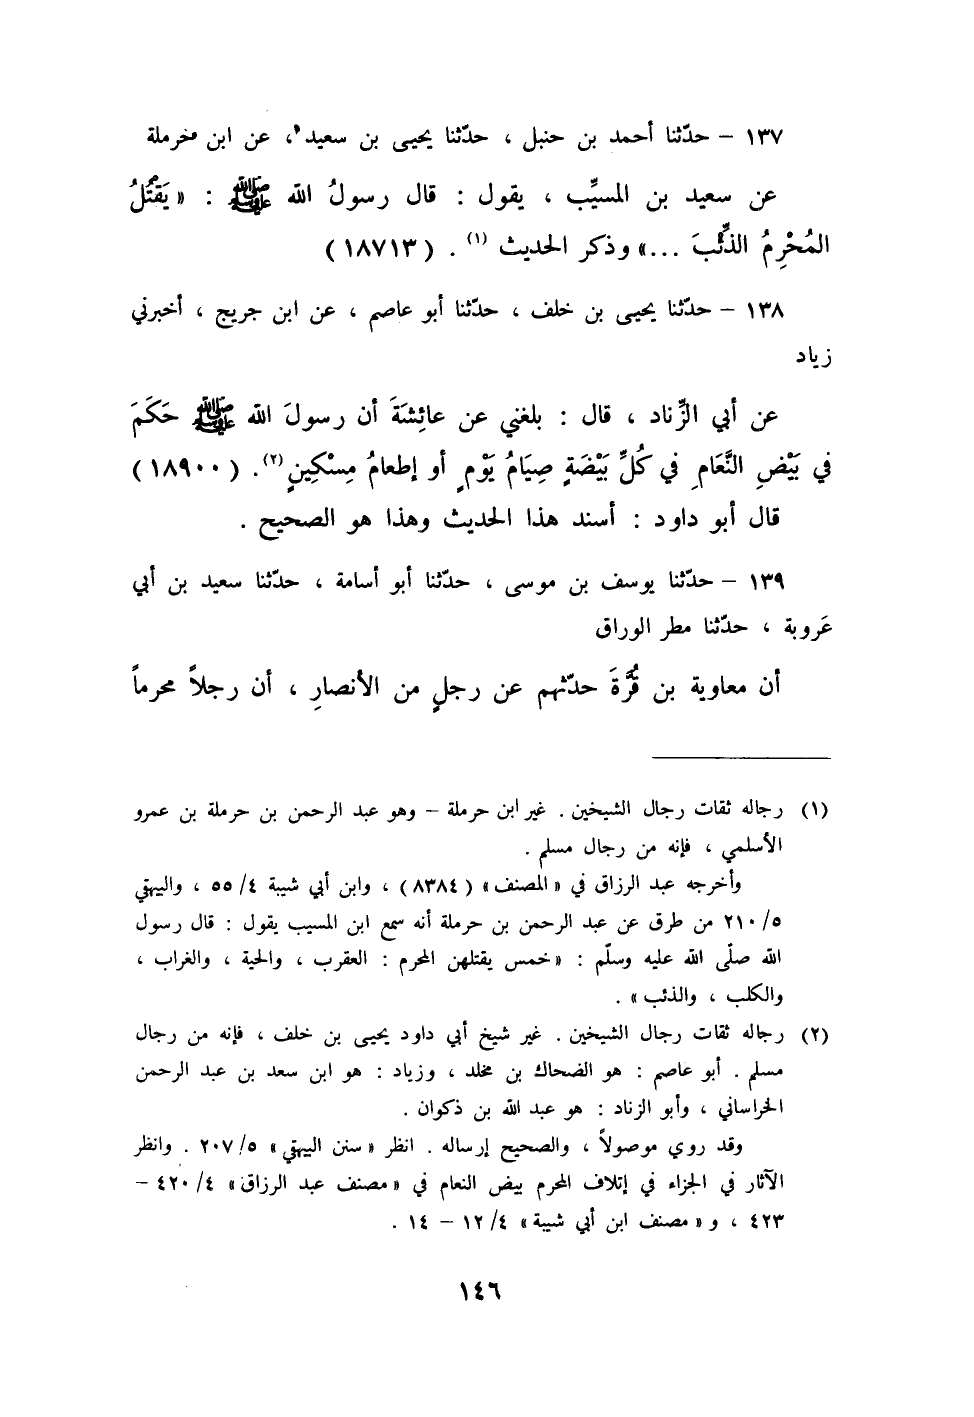 ١٣٧ – حدّثنا أحمد بن حنبل ، حدّثنا يحيى بن سعيد ، عن ابن مخرملة
عن سعيد بن المسيِّب ، يقول : قال رسولُ الله ﷺ : « يَقتُلُ
المُحْرِمُ الذِّئْبَ ...» وذكر الحديث (١) . ( ١٨٧١٣ )
١٣٨ – حدّثنا يحيى بن خلف ، حدّثنا أبو عاصم ، عن ابن جريج ، أخبرني
زياد
عن أبي الزِّناد ، قال : بلغني عن عائِشَةَ أن رسولَ الله ﷺ حَكَمَ
في بَيْضِ النَّعَامِ في كُلِّ بَيْضَةٍ صِيَامُ يَوْمٍ أو إطعامُ مِسْكِينٍ (٢). ( ١٨٩٠٠ )
قال أبو داود : أسند هذا الحديث وهذا هو الصحيح .
١٣٩ – حدّثنا يوسف بن موسى ، حدّثنا أبو أسامة ، حدّثنا سعيد بن أبي
عَروبة ، حدّثنا مطر الوراق
أن معاوية بن قُرَّةَ حدّثهم عن رجلٍ من الأنصارِ ، أن رجلاً محرماً
(١) رجاله ثقات رجال الشيخين . غير ابن حرملة – وهو عبد الرحمن بن حرملة بن عمرو
الأسلمي ، فإنه من رجال مسلم .
وأخرجه عبد الرزاق في « المصنف » ( ٨٣٨٤ ) ، وابن أبي شيبة ٤/ ٥٥ ، والبيهقي
٥/ ٢١٠ من طرق عن عبد الرحمن بن حرملة أنه سمع ابن المسيب يقول : قال رسول
الله صلّى الله عليه وسلّم : «خمس يقتلهن المحرم : العقرب ، والحية ، والغراب ،
والكلب ، والذئب» .
(٢) رجاله ثقات رجال الشيخين . غير شيخ أبي داود يحيى بن خلف ، فإنه من رجال
مسلم . أبو عاصم : هو الضحاك بن مخلد ، وزياد : هو ابن سعد بن عبد الرحمن
الخراساني ، وأبو الزناد : هو عبد الله بن ذكوان .
وقد روي موصولاً ، والصحيح إرساله . انظر « سنن البيهقي » ٥/ ٢٠٧ . وانظر
الآثار في الجزاء في إتلاف المحرم بيض النعام في « مصنف عبد الرزاق » ٤/ ٤٢٠ –
٤٢٣ ، و « مصنف ابن أبي شيبة » ٤/ ١٢ – ١٤ .
١٤٦